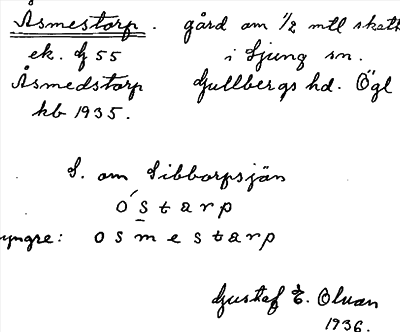 Åsmestorp. gård om 1/2 mtl skatt
ek. bl 55 i Ljung sn.
Åsmedstorp Gullbergs hd. Ögl
kb 1935.
S. om Sibborpsjön
ó s t a r p
yngre: o s m e s t a r p
Gustaf E. Olsson
1936.